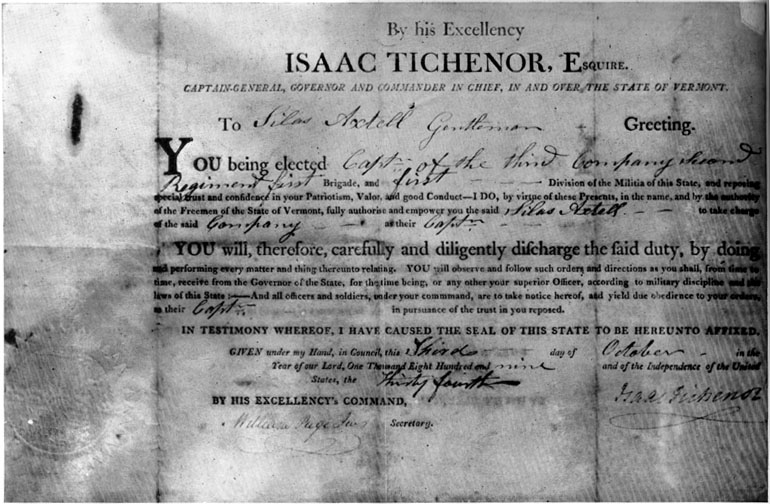 By his Excellency
ISAAC TICHENOR, ESQUIRE.
CAPTAIN-GENERAL, GOVERNOR AND COMMANDER IN CHIEF, IN AND OVER THE STATE OF VERMONT.
To Silas Axtell Gentleman Greeting.
YOU being elected Captn of the third Company Second
Regiment first Brigade, and first Division of the Militia of this State, and reposing
special trust and confidence in your Patriotism, Valor, and good Conduct—I DO, by virtue of these Presents, in the name, and by the authority
of the Freemen of the State of Vermont, fully authorise and empower you the said Silas Axtell to take charge
of the said Company as their Captn
YOU will, therefore, carefully and diligently discharge the said duty, by doing
and performing every matter and thing thereunto relating. YOU will observe and follow such orders and directions as you shall, from time to
time, receive from the Governor of the State, for the time being, or any other your superior Officer, according to military discipline and the
laws of this State:—And all officers and soldiers, under your commmand, are to take notice hereof, and yield due obedience to your orders,
as their Captn in pursuance of the trust in you reposed.
IN TESTIMONY WHEREOF, I HAVE CAUSED THE SEAL OF THIS STATE TO BE HEREUNTO AFFIXED.
GIVEN under my Hand, in Council, this Third day of October in the
Year of our Lord, One Thousand Eight Hundred and nine and of the Independence of the United
States, the thirty fourth
BY HIS EXCELLENCY'S COMMAND, Isaac Tichenor
William Page Secretary.